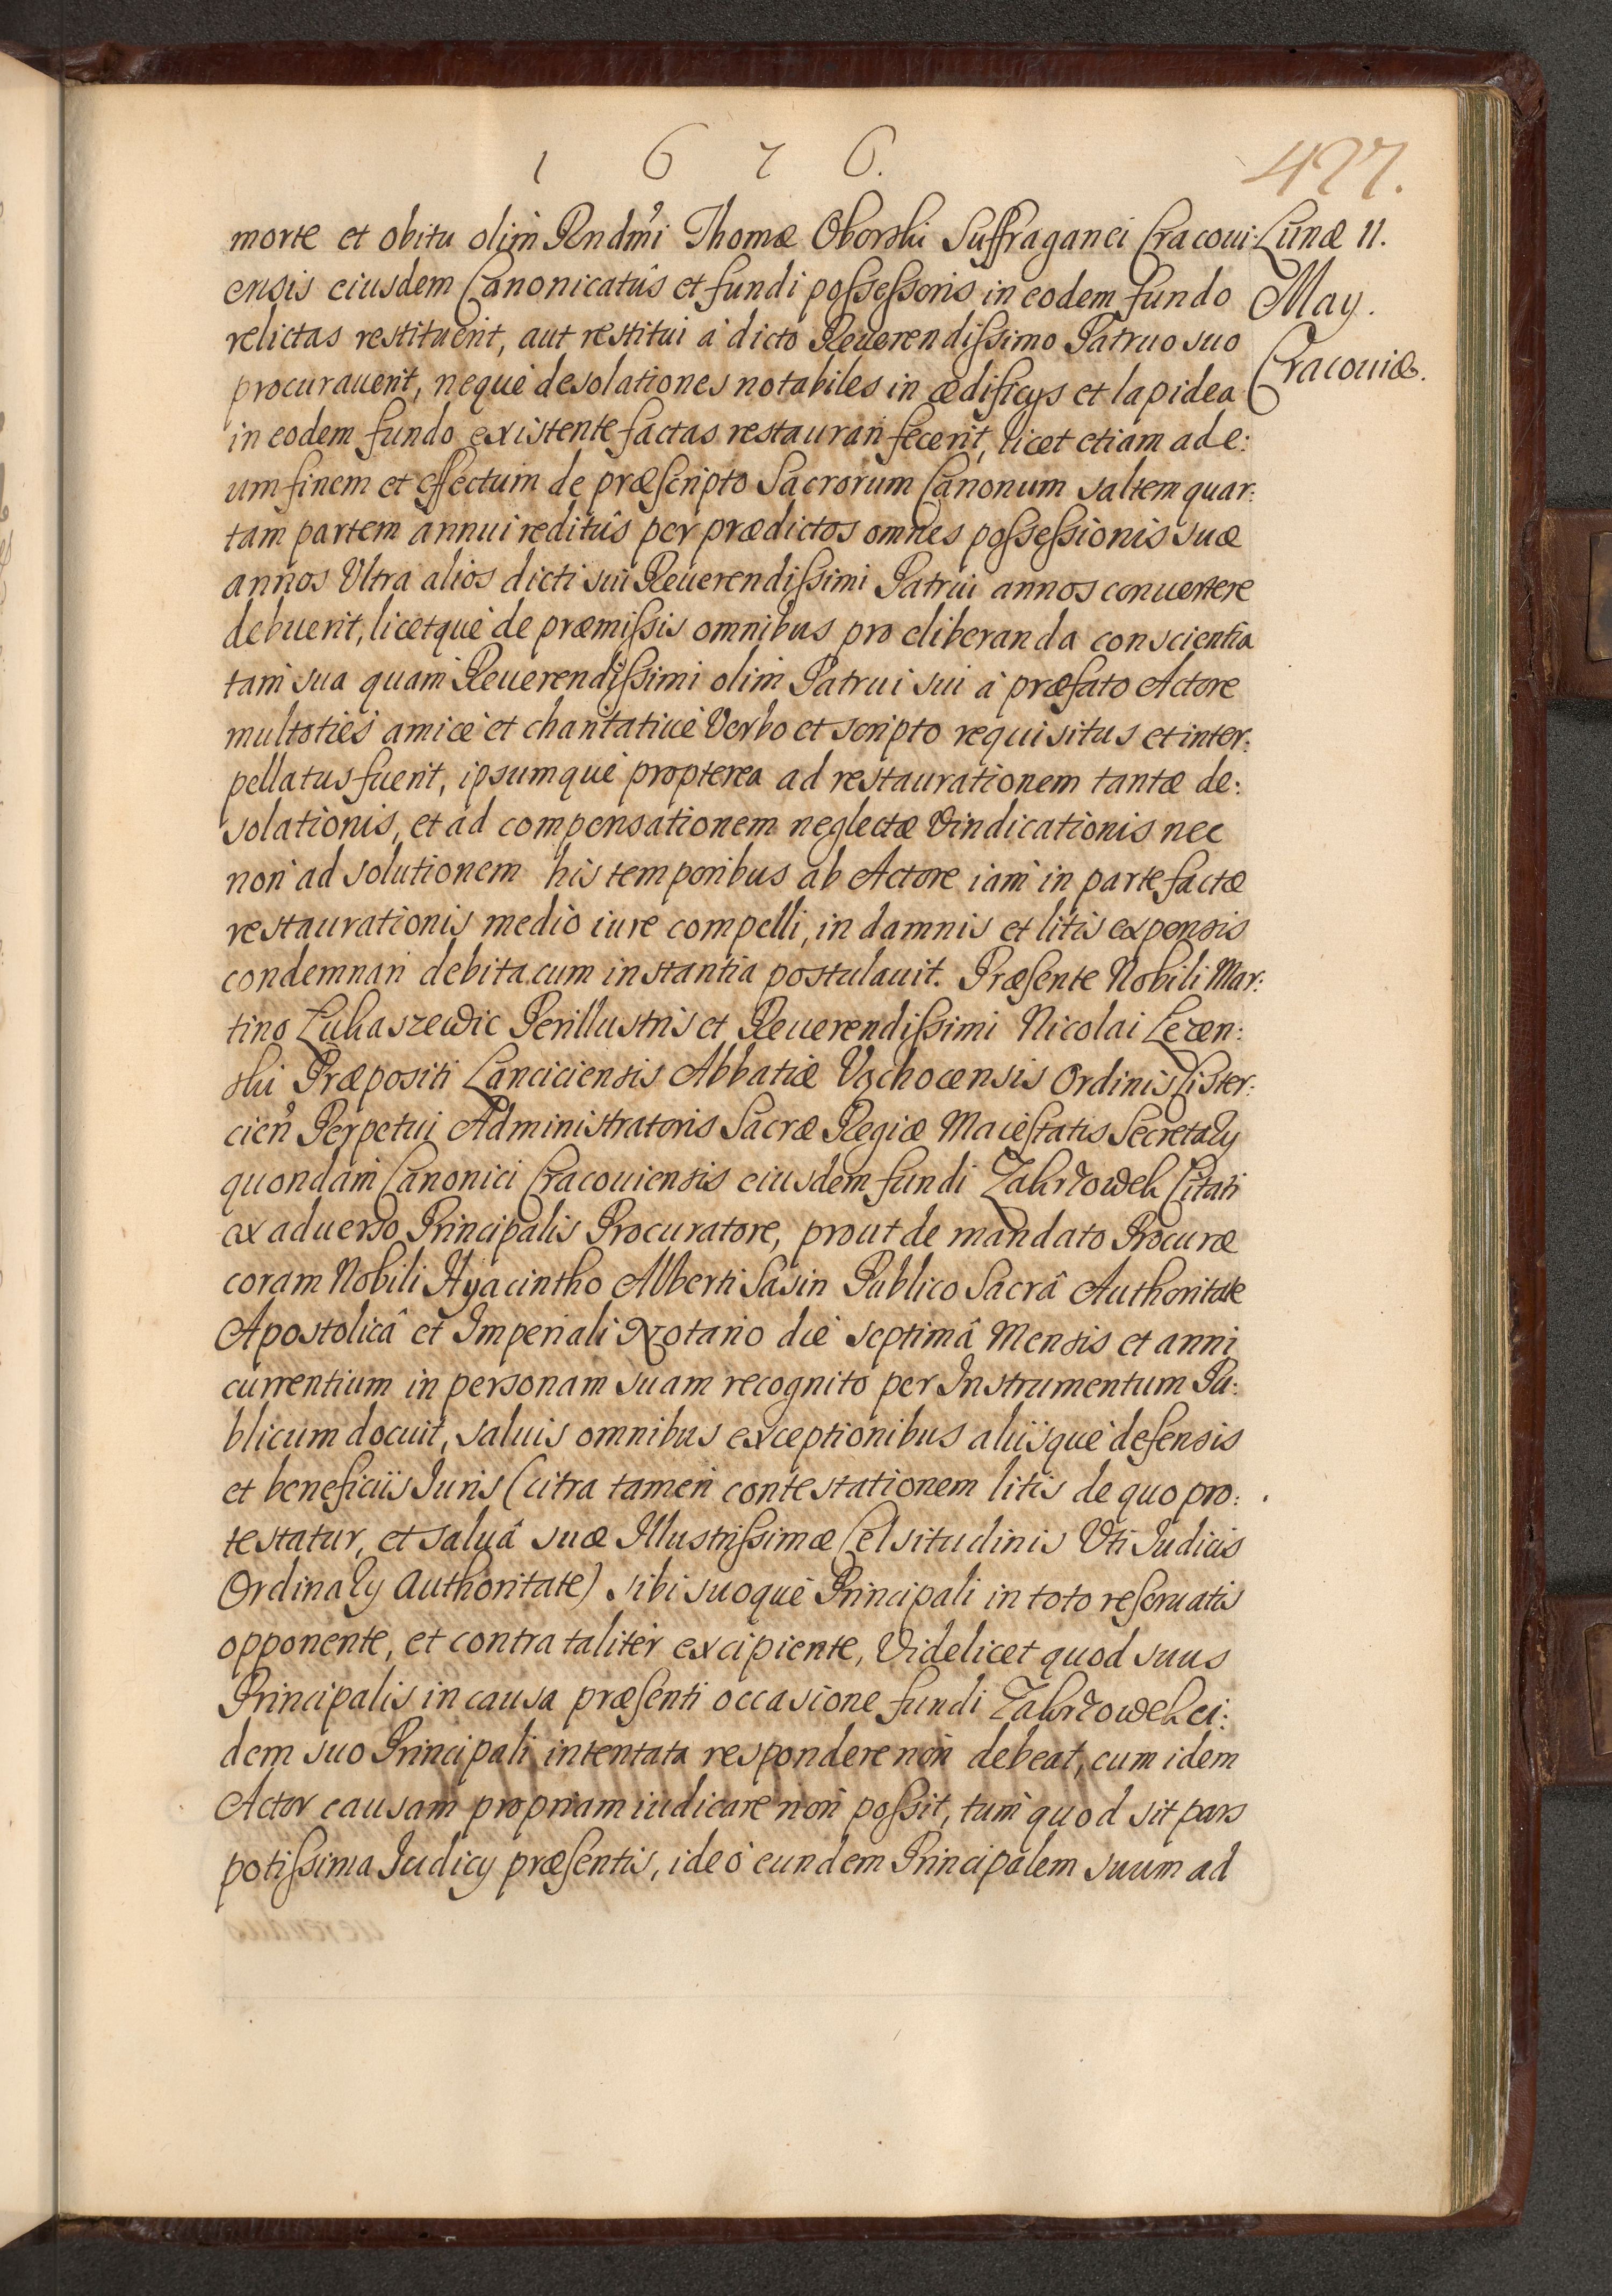 1 6 7 6.
477.
Lunæ 11.
May.
Cracouiæ.
morte et obitu olim Rndmi Thomæ Oborski Suffraganei Cracoui:
ensis eiusdem Canonicatûs et fundi possessoris in eodem fundo
relictas restituerit, aut restitui à dicto Reuerendissimo Patruo suo
procurauerit, neque desolationes notabiles in ædificijs et lapidea
in eodem fundo existente factas restaurari fecerit, licet etiam ad e:
um finem et effectum de præscripto Sacrorum Canonum saltem quar:
tam partem annui reditûs per prædictos omnes possessionis suæ
annos Vltra alios dicti sui Reuerendissimi Patrui annos conuertere
debuerit, licetque de præmissis omnibus pro eliberanda conscientia
tam sua quam Reuerendissimi olim Patrui sui à præfato Actore
multoties amicè et charitatiuè Verbo et scripto requisitus et inter:
pellatus fuerit, ipsumque propterea ad restaurationem tantæ de:
solationis, et ad compensationem neglectæ Vindicationis nec
non ad solutionem his temporibus ab Actore iam in parte factæ
restaurationis medio iure compelli, in damnis et litis expensis
condemnari debita cum instantia postulauit. Præsente Nobili Mar:
tino Łukaszewic Perillustris et Reuerendissimi Nicolai Leżen:
ski Præpositi Lanciciensis Abbatiæ Vąchocensis Ordinis Cister:
cien Perpetui Administratoris Sacræ Regiæ Maiestatis Secretarij
quondam Canonici Cracouiensis eiusdem fundi Zakrzowek Citati
ex aduerso Principalis Procuratore, prout de mandato Procuræ
coram Nobili Hyacintho Alberti Sasin Publico Sacrâ Authoritate
Apostolicâ et Imperiali Notario die septimâ Mensis et anni
currentium in personam suam recognito per Instrumentum Pu:
blicum docuit, saluis omnibus exceptionibus aliisque defensis
et beneficiis Iuris (citra tamen contestationem litis de quo pro:
testatur, et saluâ suæ Illustrissimæ Celsitudinis Vti Iudicis
Ordinarij Authoritate) sibi suoque Principali in toto reseruatis
opponente, et contra taliter excipiente, Videlicet quod suus
Principalis in causa præsenti occasione fundi Zakrzowek ei:
dem suo Principali intentata respondere non debeat, cum idem
Actor causam propriam iudicare non possit, tum quod sit pars
potissima Iudicij præsentis, ideò eundem Principalem suum ad